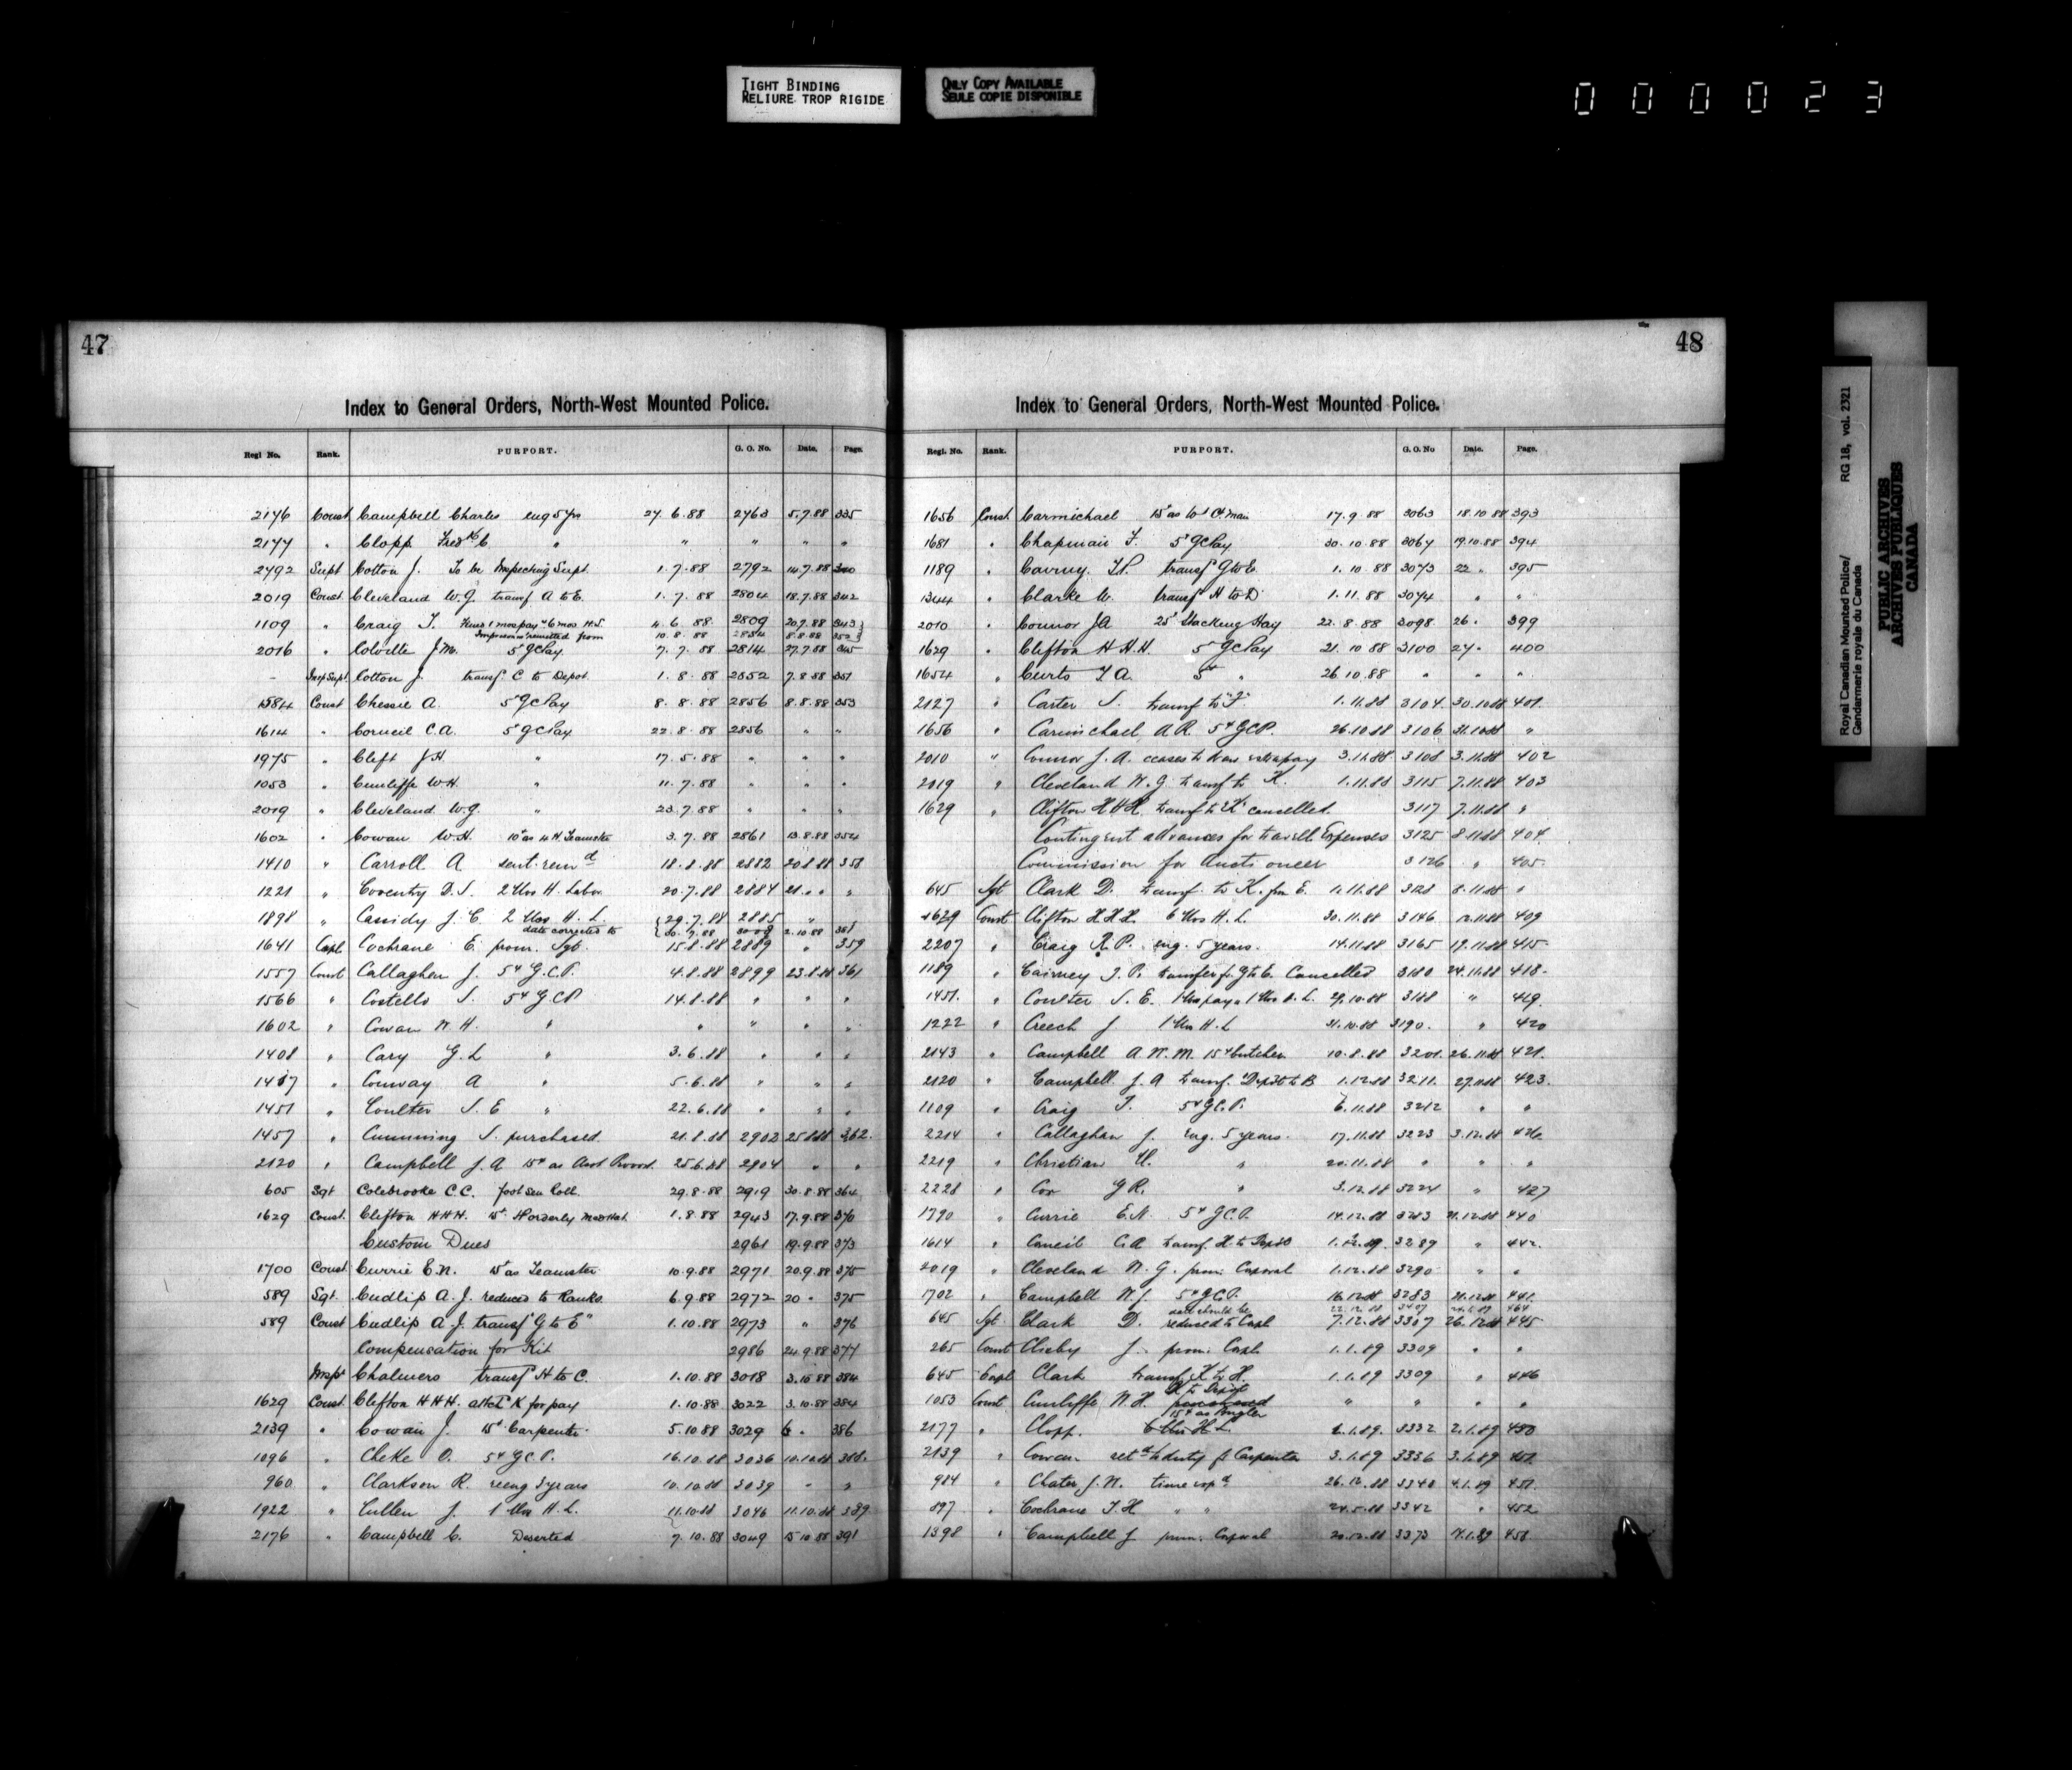 TIGHT BINDING
RELIURE TROP RIGIDE
ONLY COPY AVAILABLE
SEULE COPIE DISPONIBLE
000023
47
Index to General Orders, North-West Mounted Police.
Regl No. Rank. PURPORT. G. O. No. Date. Page.
2176 Const Campbell Charles eng 5 yrs 27.6.88 2763 5.7.88 335
2177 " Clopp Fredk C " " " " "
2792 Supt Cotton J. To be Inspecting Supt. 1.7.88 2792 14.7.88 340
2019 Const. Cleveland W.G. transf A to E. 1.7.88 2804 18.7.88 342
1109 " Craig T. Fined 1 mos pay & 6 mos H.L. 4.6.88. 2809 20.7.88 343
Imprison remitted from 10.8.88 2854 8.8.88 352
2016 " Colville J.M. 5¢ GC Pay 7.7.88 2814 27.7.88 345
- Insp Supt. Cotton J. transf C to Depot. 1.8.88 2852 7.8.88 351
1584 Const Chessie A. 5¢ GC Pay 8.8.88 2856 8.8.88 353
1614 " Corneil C.A. 5¢ GC Pay 22.8.88 2856 " "
1975 " Clift J.H. " 17.5.88 " " "
1053 " Cunliffe W.H. " 11.7.88 " " "
2019 " Cleveland W.G. " 23.7.88 " " "
1602 " Cowan W.H. 10¢ as 4 H. Teamster 3.7.88 2861 13.8.88 354
1410 " Carroll A sent. remd 18.8.88 2882 20.8.88 358
1221 " Coventry D.S. 2 Mos H. Labor 20.7.88 2884 21. " "
1898 " Cassidy J.C. 2 Mos H. L. 29.7.88 2885 "
date corrected to 30.7.88 3008 2.10.88 381
1641 Corpl Cochrane E. prom. Sgt. 15.8.88 2889 " 359
1557 Const Callaghen J. 5¢ G.C.P. 4.8.88 2899 23.8.88 361
1566 " Costello S. 5¢ GCP 14.8.88 " " "
1602 " Cowan W.H. " " " " "
1408 " Cary G.L " 3.6.88 " " "
1417 " Conway A " 5.6.88 " " "
1451 " Coulter S.E " 22.6.88 " " "
1457 " Cumming S. purchased. 21.8.88 2902 25.8.88 362.
2120 " Campbell J.A 15¢ as Asst Provost. 25.6.88 2904 " "
605 Sgt Colebrooke C.C. foot see Coll. 29.8.88 2919 30.8.88 364
1629 Const. Clifton H.H.H. 15¢ Horderly Med Hat. 1.8.88 2943 17.9.88 370
Custom Dues 2961 19.9.88 373
1700 Const Currie E.N. 15¢ as Teamster 10.9.88 2971 20.9.88 375
589 Sgt. Cudlip A.J. reduced to Ranks. 6.9.88 2972 20 " 375
589 Const Cudlip A.J. transf "G to E" 1.10.88 2973 " 376
Compensation for Kit 2986 24.9.88 377
Inspr Chalmers transf H to C. 1.10.88 3018 3.10.88 384
1629 Const. Clifton H.H.H. attd K for pay 1.10.88 3022 3.10.88 384
2139 " Cowan J. 15¢ Carpenter. 5.10.88 3029 6 " 386
1096 " Cheke O. 5¢ G.C.P. 16.10.88 3036 10.10.88 388.
960 " Clarkson R. reeng 3 years 10.10.88 3039 " "
1922 " Cullen J. 1 Mos H.L. 11.10.88 3046 11.10.88 389.
2176 " Campbell C. Deserted 7.10.88 3049 15.10.88 391
48
Index to General Orders, North-West Mounted Police.
Regl. No. Rank. PURPORT. G. O. No Date. Page.
1656 Const Carmichael 15¢ as 17.9.88 3063 18.10.88 393
1681 " Chapman F. 5¢ GC Pay 30.10.88 3067 19.10.88 394
1189 " transf G to E. 1.10.88 3073 22 " 395
1344 " Clarke W. transf H to D 1.11.88 3074 " "
2010 " Connor JA 25¢ Stacking Hay 22.8.88 3098 26 " 399
1629 " Clifton H.H.H. 5¢ GC Pay 21.10.88 3100 27 " 400
1654 " Curts F.A. 5¢ " 26.10.88 " " "
2127 " Carter S. transf to "F" 1.11.88 3104. 30.10.88 401.
1656 " Carmichael A.R. 5¢ GCP. 26.10.88 3106 31.10.88 "
2010 " Connor J.A. ceases to draw extra pay 3.11.88 3108 3.11.88 402
2019 " Cleveland W.G. transf to K. 1.11.88 3115 7.11.88 403
1629 " Clifton HHH transf to K cancelled. 3117 7.11.88 "
Contingent advances for travell Expenses 3125 8.11.88 404.
Commission for Auctioneer 3126 " 405.
645 Sgt Clark D. transf. to K. fm E. 1.11.88 3128 8.11.88 "
1629 Const Clifton HHH. 6 Mos H.L. 30.11.88 3146 12.11.88 409
2207 " Craig R.P. eng. 5 years. 14.11.88 3165 19.11.88 415.
1189 " Cairney T.P. transfer fr G to E. Cancelled 3180 24.11.88 418.
1451. " Coulter S.E. 1 Mos pay & 1 Mos H.L. 29.10.88 3188 " 419.
1222 " Creech J 1 Mos H.L 31.10.88 3190. " 420
2143 " Campbell A.W.M. 15¢ butcher 10.8.88 3201. 26.11.88 421.
2120 " Campbell J.A transf. "Depôt to B 1.12.88 3211. 27.11.88 423.
1109 " Craig T. 5¢ G.C.P. 6.11.88 3212 " "
2214 " Callaghan J. eng. 5 years. 17.11.88 3223 3.12.88 426.
2219 " Christian H. " 20.11.88 " " "
2228 " Cox G.R. " 3.12.88 3224 " 427
1790 " Currie E.N. 5¢ G.C.P. 14.12.88 3283 21.12.88 440
1614 " Corneil C.A transf. H. to Depôt 3289 " 442.
2019 " Cleveland W.G. prom: Corporal 1.12.88 3290 " "
1702 " Campbell W.J. 5¢ G.C.P. 16.12.88 3283 21.12.88 441.
date should be 22.12.88 464
645 Sgt. Clark D. reduced to Corpl 7.12.88 3307 26.12.88 445.
265 Const Cleeby J. prom: Corpl 1.1.89 3309 " "
645 Corpl Clark transf. K to H. 1.1.89 3309 " 446
1053 Const Cunliffe W.H. K to Depôt " " " "
15¢ as Bugler
2177 " Clopp. 6 Mos H.L. 2.1.89. 3332 2.1.89 450
2139 " Cowan retd to duty fr Carpenter 3.1.89 3336 3.1.89 451.
984 " Chater J.N. time expd 26.12.88 3340 4.1.89 451.
897 " Cochrane T.H " " 24.5.88 3342 " 452
1398 " Campbell J prom. Corporal 20.12.88 3373 7.1.89 458
Royal Canadian Mounted Police/ RG 18, vol. 2321
Gendarmerie royale du Canada
PUBLIC ARCHIVES
ARCHIVES PUBLIQUES
CANADA